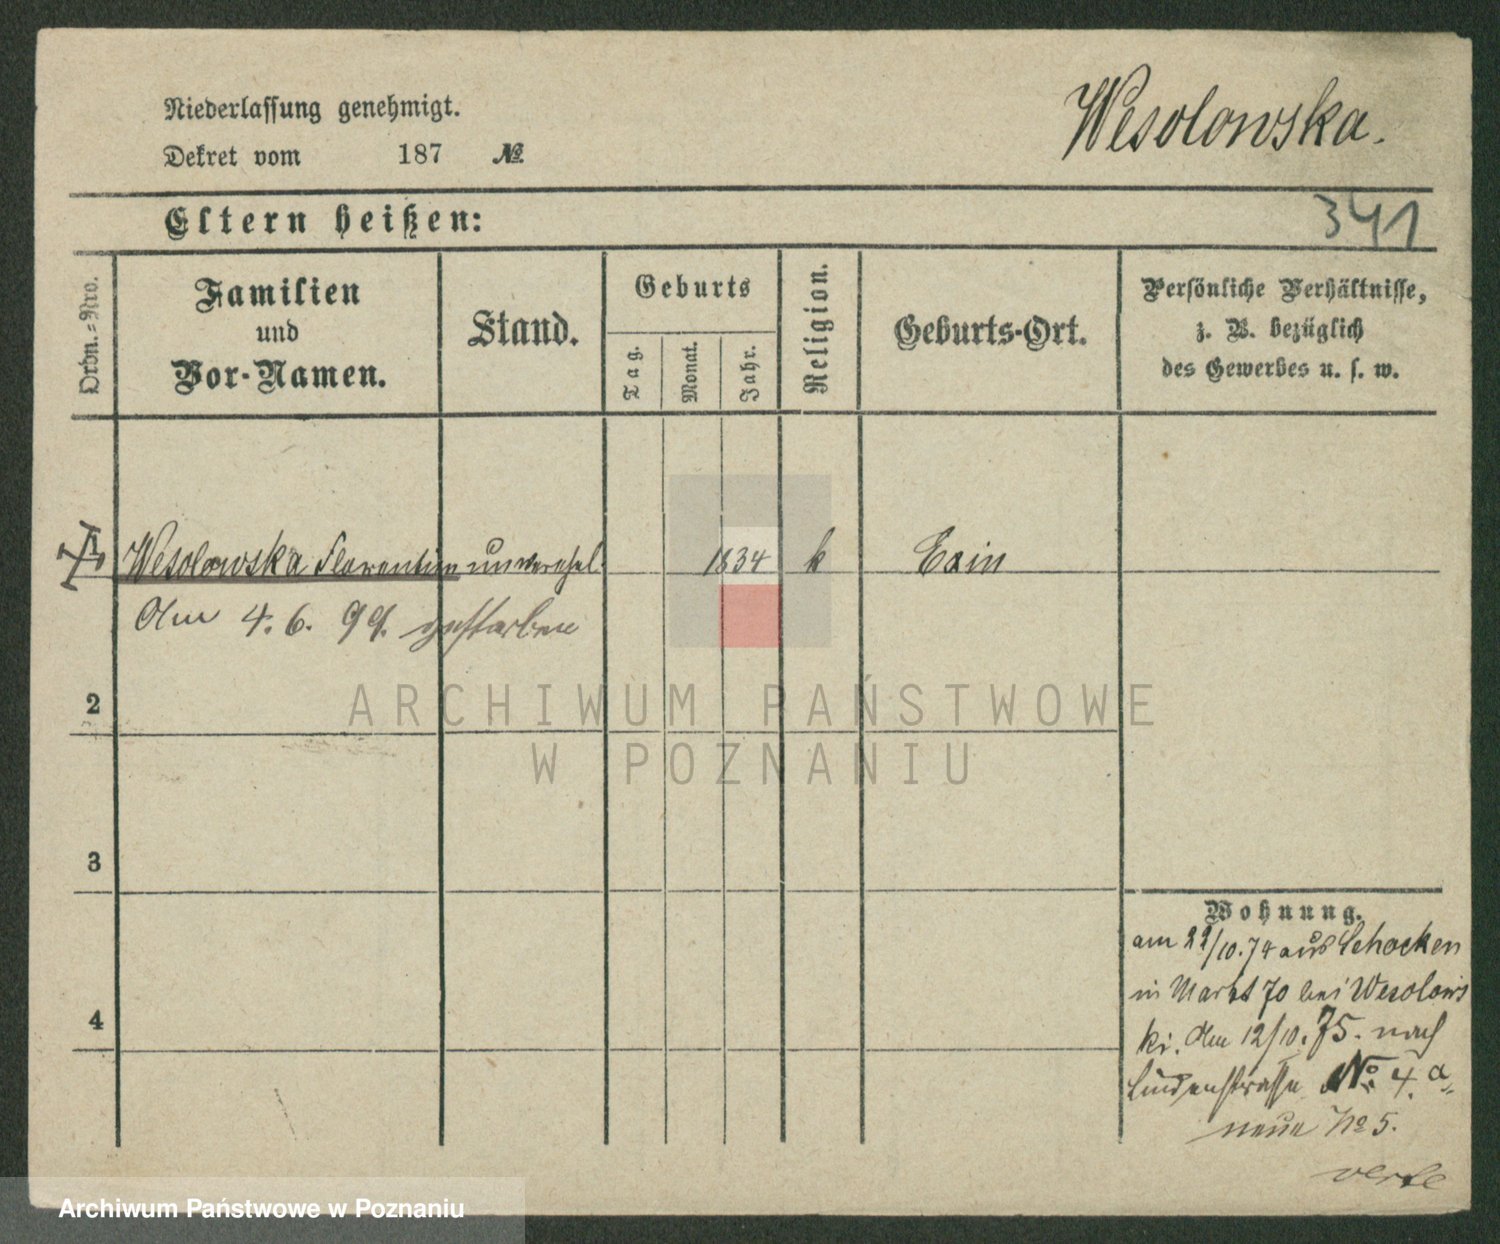 Niederlassung genehmigt.
Wesolowska.
Dekret vom 187 №
Eltern heißen:
341
Ordn.-Nro.
Familien
und
Vor-Namen.
Stand.
Geburts
Tag.
Monat.
Jahr.
Religion.
Geburts-Ort.
Persönliche Verhältnisse,
z. B. bezüglich
des Gewerbes u. s. w.
1 Wesolowska Florentine unverehel. 1834 k Exin
Am 4. 6. 99. gestorben
2
3
4
Wohnung.
am 22/10.74 aus Schocken
in Markt 70 bei Wesolows
ki. Am 12/10.75. nach
Lindenstrasse № 4.a
neue No 5.
verte
ARCHIWUM PAŃSTWOWE
W POZNANIU
Archiwum Państwowe w Poznaniu